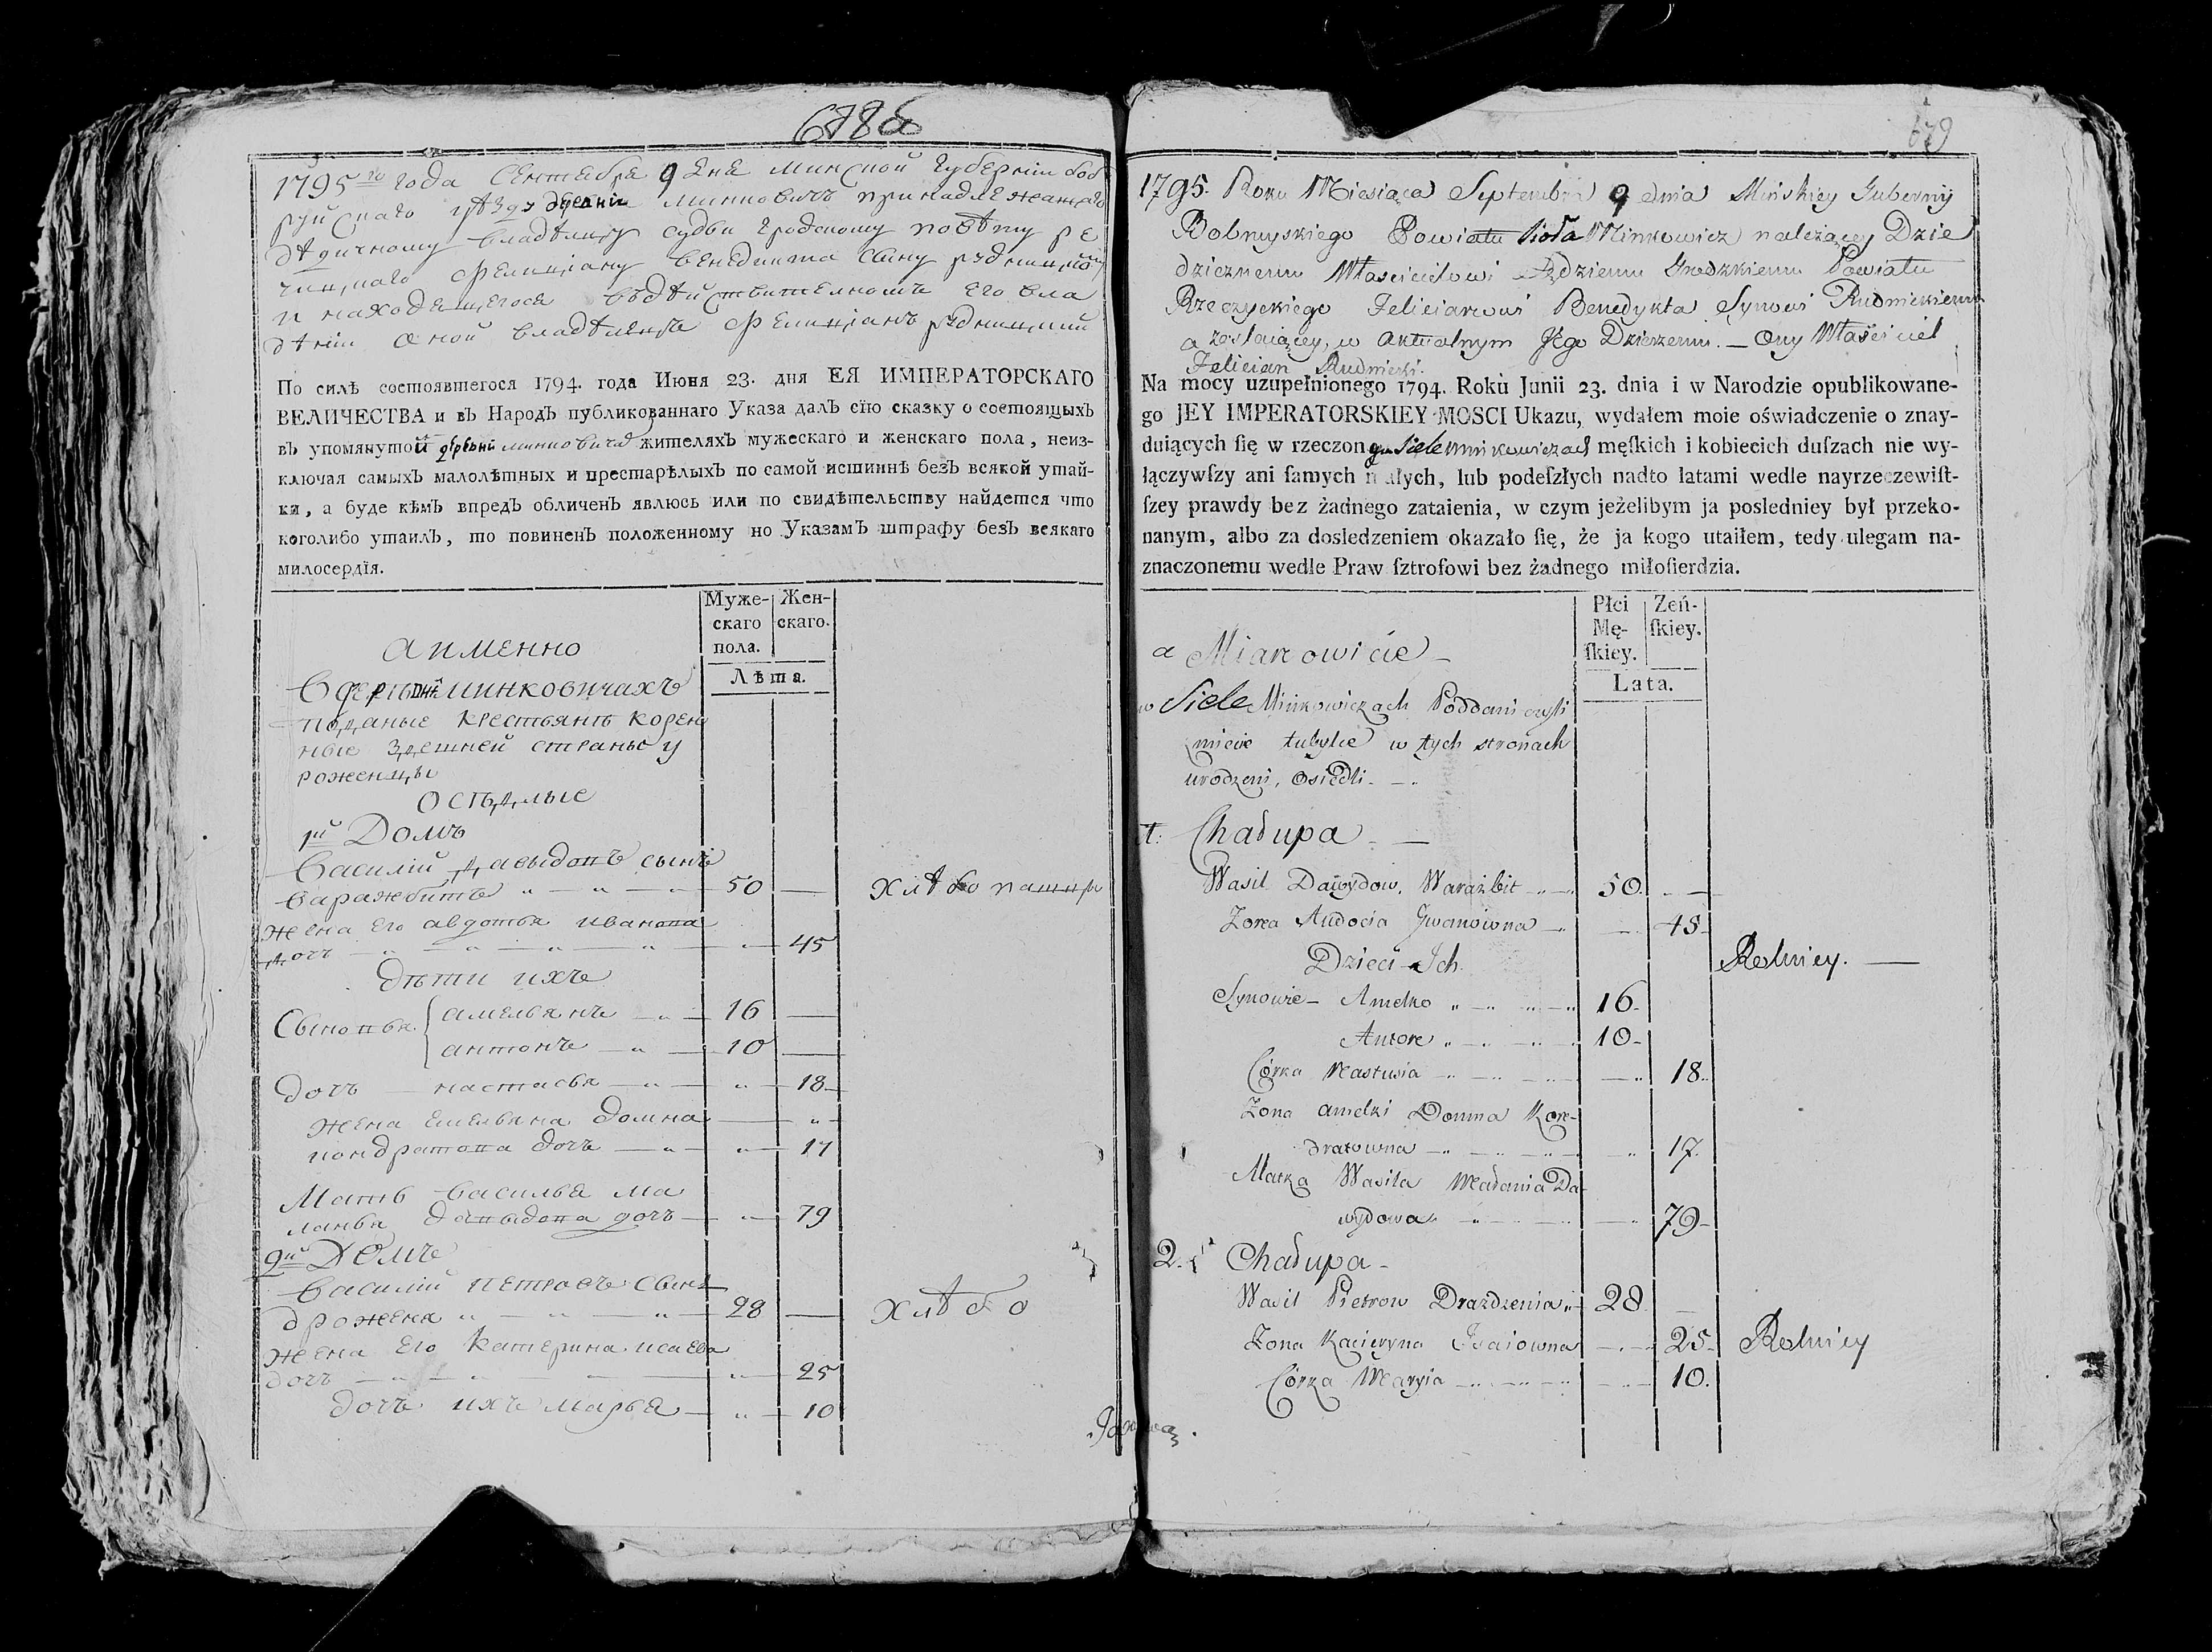 678б
1795го года Сентебре 9 дне минской губерніи боб
руйскаго уѣзду деревни минковичъ принадлежащаго
дѣдичному владѣлцу судьи гродскому повѣту ре
чицкаго Фелиціану бенедикта сыну рудницкому
и находещегосе въ дѣйствителномъ его вла
дѣніи оной владѣлецъ Фелиціанъ рудницкий
По силѣ состоявшегося 1794. года Июня 23. дня ЕЯ ИМПЕРАТОРСКАГО
ВЕЛИЧЕСТВА и въ Народъ публикованнаго Указа далъ сїю сказку о состоящыхъ
въ упомянутой деревни минковича жителяхъ мужескаго и женскаго пола, неиз-
ключая самыхъ малолѣтных и престарѣлыхъ по самой истиннѣ безъ всякой утай-
ки, а буде кѣмъ впредъ обличенъ явлюсь или по свидѣтельству найдется что
коголибо утаилъ, то повиненъ положенному но Указамъ штрафу безъ всякаго
милосердїя.
Муже- Жен-
скаго скаго.
пола.
Лѣта.
а именно
в деревнѣ минковичахъ
поданые крестьянѣ корен
ные здешней страны у
роженцы
оседлые
1й Домъ
василий давыдовъ сынъ
варажбитъ 50 хлѣбо пашцы
жена его авдотья иванова
дочъ 45
дѣти ихъ
Сыновья амельянъ 16
антонъ 10
дочъ настасья 18
жена емельяна домна
кондратова дочъ 17
Мать василья ма
ланья давыдова дочъ 79
2й Домъ
василий петровъ сынъ
дроженя 28 хлѣбо
жена его катерина исаева
дочъ 25
дочъ ихъ марья 10
679
1795. Roku Miesiąca Septembra 9 dnia Mińskiey Gubernij
Bobruyskiego Powiatu Sioła Minkowicz należącey Dzie
dzicznemu Włascicielowi Sędziemu Grodzkiemu Powiatu
Rzeczyckiego Felicianowi Benedykta Synowi Rudnickiemu
a zostaiącey, w aktualnym Jego Dzierzeniu. — Ony Właściciel
Felician Rudnicki.
Na mocy uzupełnionego 1794. Rokù Junii 23. dnia i w Narodzie opublikowane-
go JEY IMPERATORSKIEY MOSCI Ukazu, wydałem moie oświadczenie o znay-
duiących ſię w rzeczonym Siele Minkowiczach męſkich i kobiecich duſzach nie wy-
łączywſzy ani ſamych małych, lub podeſzłych nadto latami wedle nayrzeczewiſt-
ſzey prawdy bez żadnego zataienia, w czym jeżelibym ja posledniey był przeko-
nanym, albo za dosledzeniem okazało ſię, że ja kogo utaiłem, tedy ulegam na-
znaczonemu wedle Praw ſztrofowi bez żadnego miłoſierdzia.
Płci Zeń-
Mę- ſkiey.
ſkiey.
Lata.
a Mianowicie —
w Siele Minkowiczach Poddani czyli
kmiecie tubylce w tych stronach
urodzeni, Osiedli. —
1. Chałupa —
Wasil Dawydow, Warażbit 50.
Zona Audocia Jwanowna 45
Dzieci Ich. Rolnicy. —
Synowie — Amelko 16.
Anton 10.
Córka Nastusia 18.
Zona Amelki Domna Kon-
dratowna 17.
Matka Wasila Małania Da-
wydowa 79
2. Chałupa —
Wasil Pietrow Drażdzenia 28
Zona Kacieryna Isaiowna 25 Rolnicy
Córka Maryia 10.